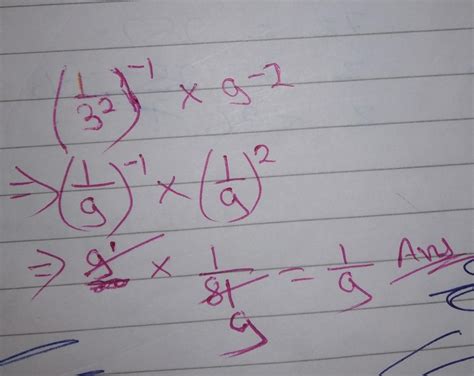 (1/3²)⁻¹ × 9⁻²
⇒ (1/9)⁻¹ × (1/9)²
⇒ 9 × 1/81 = 1/9 Ans
9